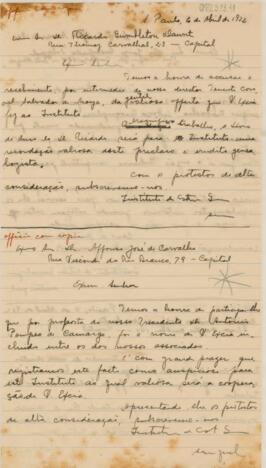 S. Paulo, 6 de Abril de 1932
Exmo Snr Dr. Ricardo Gumbleton Daunt
Rua Thomaz Carvalhal, 23 - Capital
Temos a honra de accusar o
recebimento, por intermedio de nosso director Tenente Coro
nel Salvador de Moya, da offerta que V Excia
fez ao Instituto
trabalho,
Instituto uma
recordação valiosa deste preclaro e erudito genea
logista.
Com os protestos de alta
consideração, subscrevemo-nos
Instituto de
officio com copia
Exmo Snr Dr. Affonso José de Carvalho
Rua Visconde do Rio Branco, 79 - Capital
Exmo Senhor
Temos a honra de participar lhe
que por proposta do nosso Presidente Dr Antonio
Pompeo de Camargo, foi o nome de V. Excia in
cluido entre os dos nossos associados.
É com grande prazer que
registramos este facto como auspicioso para
este Instituto ao qual valiosa será a coopera
ção de V. Excia.
Apresentando lhe os protestos
de alta consideração, subscrevemo-nos
Instituto de